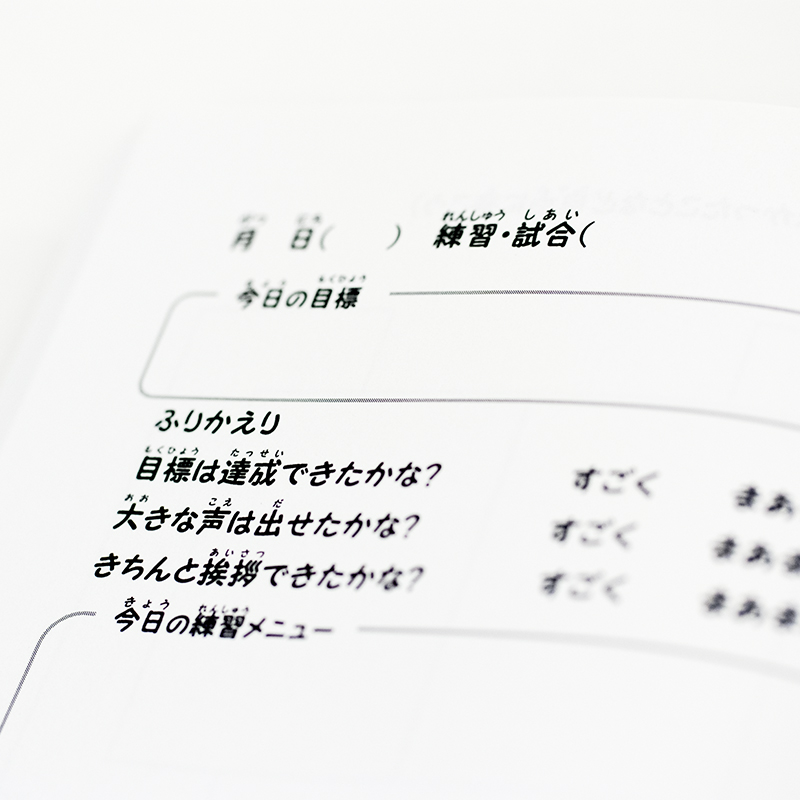 月 日( ) 練習・試合(
今日の目標
ふりかえり
目標は達成できたかな? すごく まあ
大きな声は出せたかな? すごく まあま
きちんと挨拶できたかな? すごく まあま
今日の練習メニュー